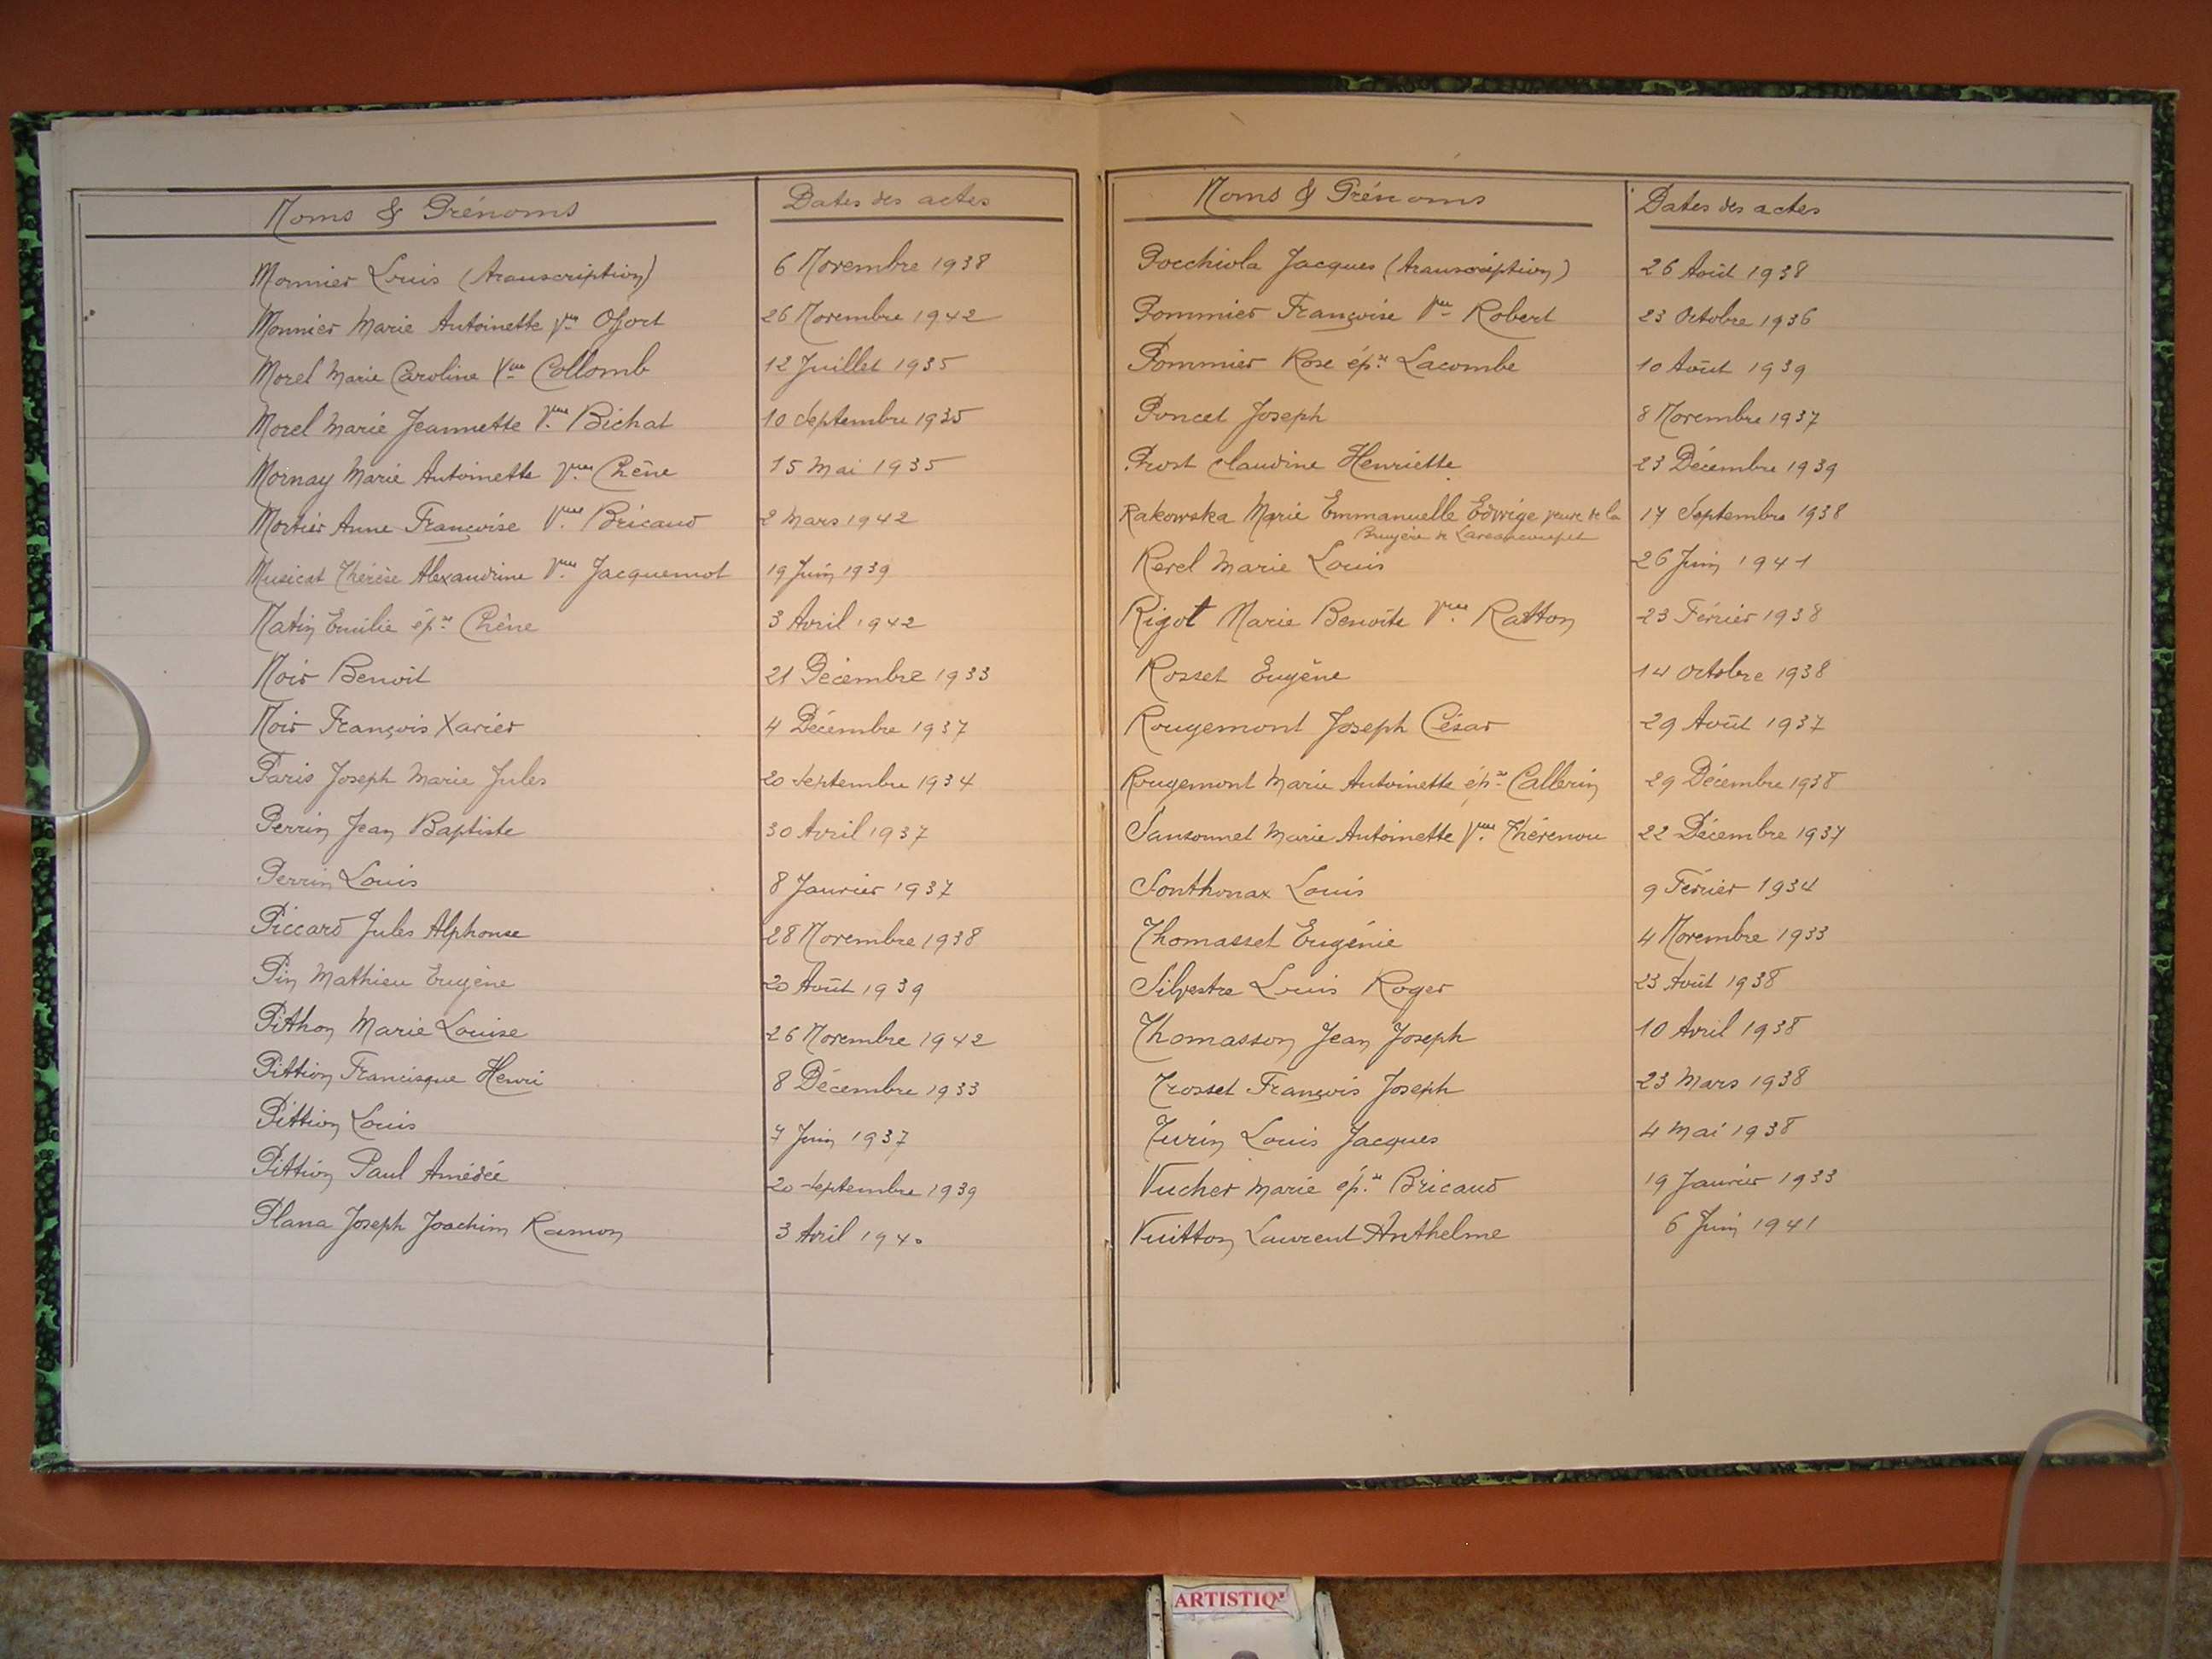 Noms & Prénoms
Dates des actes
Monnier Louis (transcription)
6 Novembre 1938
Monnier Marie Antoinette Vve Offort
26 Novembre 1942
Morel Marie Caroline Vve Collomb
12 Juillet 1935
Morel Marie Jeannette Vve Bichat
10 Septembre 1935
Mornay Marie Antoinette Vve Chêne
15 Mai 1935
Mortier Anne Françoise Vve Bricaud
2 Mars 1942
Musicat Thérèse Alexandrine Vve Jacquemot
19 Juin 1939
Natin Emilie épse Chêne
3 Avril 1942
Noir Benoit
21 Décembre 1933
Noir François Xavier
4 Décembre 1937
Paris Joseph Marie Jules
20 Septembre 1934
Perrin Jean Baptiste
30 Avril 1937
Perrin Louis
8 Janvier 1937
Piccard Jules Alphonse
28 Novembre 1938
Pin Mathieu Eugène
20 Août 1939
Pithon Marie Louise
26 Novembre 1942
Pittion Francisque Henri
8 Décembre 1933
Pittion Louis
7 Juin 1937
Pittion Paul Amédée
20 Septembre 1939
Plana Joseph Joachim Ramon
3 Avril 1940
Noms & Prénoms
Dates des actes
Pocchiola Jacques (transcription)
26 Août 1938
Pommier Françoise Vve Robert
23 Octobre 1936
Pommier Rose épse Lacombe
10 Août 1939
Poncet Joseph
8 Novembre 1937
Prost Claudine Henriette
23 Décembre 1939
Rakowska Marie Emmanuelle Edwige veuve de la
17 Septembre 1938
Bruyère de
Revel Marie Louis
26 Juin 1941
Rigot Marie Benoîte Vve Ratton
23 Février 1938
Rosset Eugène
14 Octobre 1938
Rougemont Joseph César
29 Août 1937
Rougemont Marie Antoinette épse Callerin
29 Décembre 1938
Sansonnet Marie Antoinette Vve Thévenou
22 Décembre 1937
Sonthonax Louis
9 Février 1934
Thomasset Eugénie
4 Novembre 1933
Silvestre Louis Roger
23 Août 1938
Thomasson Jean Joseph
10 Avril 1938
Trosset François Joseph
23 Mars 1938
Turin Louis Jacques
4 Mai 1938
Vucher Marie épse Bricaud
19 Janvier 1933
Vuitton Laurent Anthelme
6 Juin 1941
ARTISTIQ